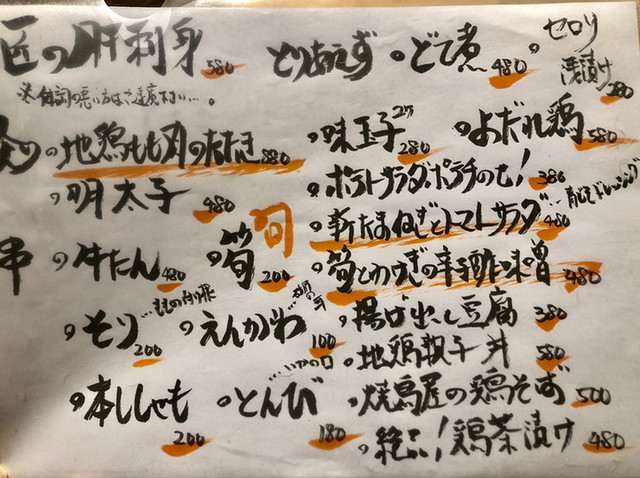 匠の肝刺身 580
※体調の悪い方はご遠慮下さい…。
とりあえず
どて煮 480
セロリ
浅漬け 280
地鶏もも肉のたたき 880
明太子 480
味玉子 2ヶ 280
よだれ鶏 580
ポテトサラダ、ポテチのせ! 380
新たまねぎとトマトサラダ 480
旬
串
牛たん 480
筍 200
筍とわけぎの辛子酢味噌 480
そり 200
えんがわ 100
揚げ出し豆腐 380
地鶏親子丼 580
本ししゃも 200
とんび 180
いかの口
焼鳥屋の鶏そぼろ 500
絶品!鶏茶漬け 480